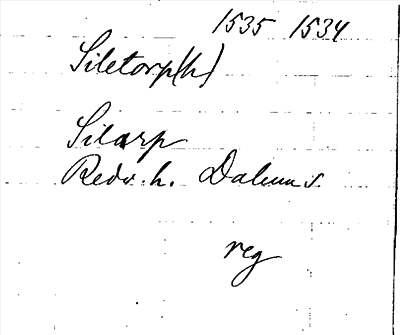 1535 1534
Siletorp(h)
Silarp
Redv. h. Dalum s.
reg